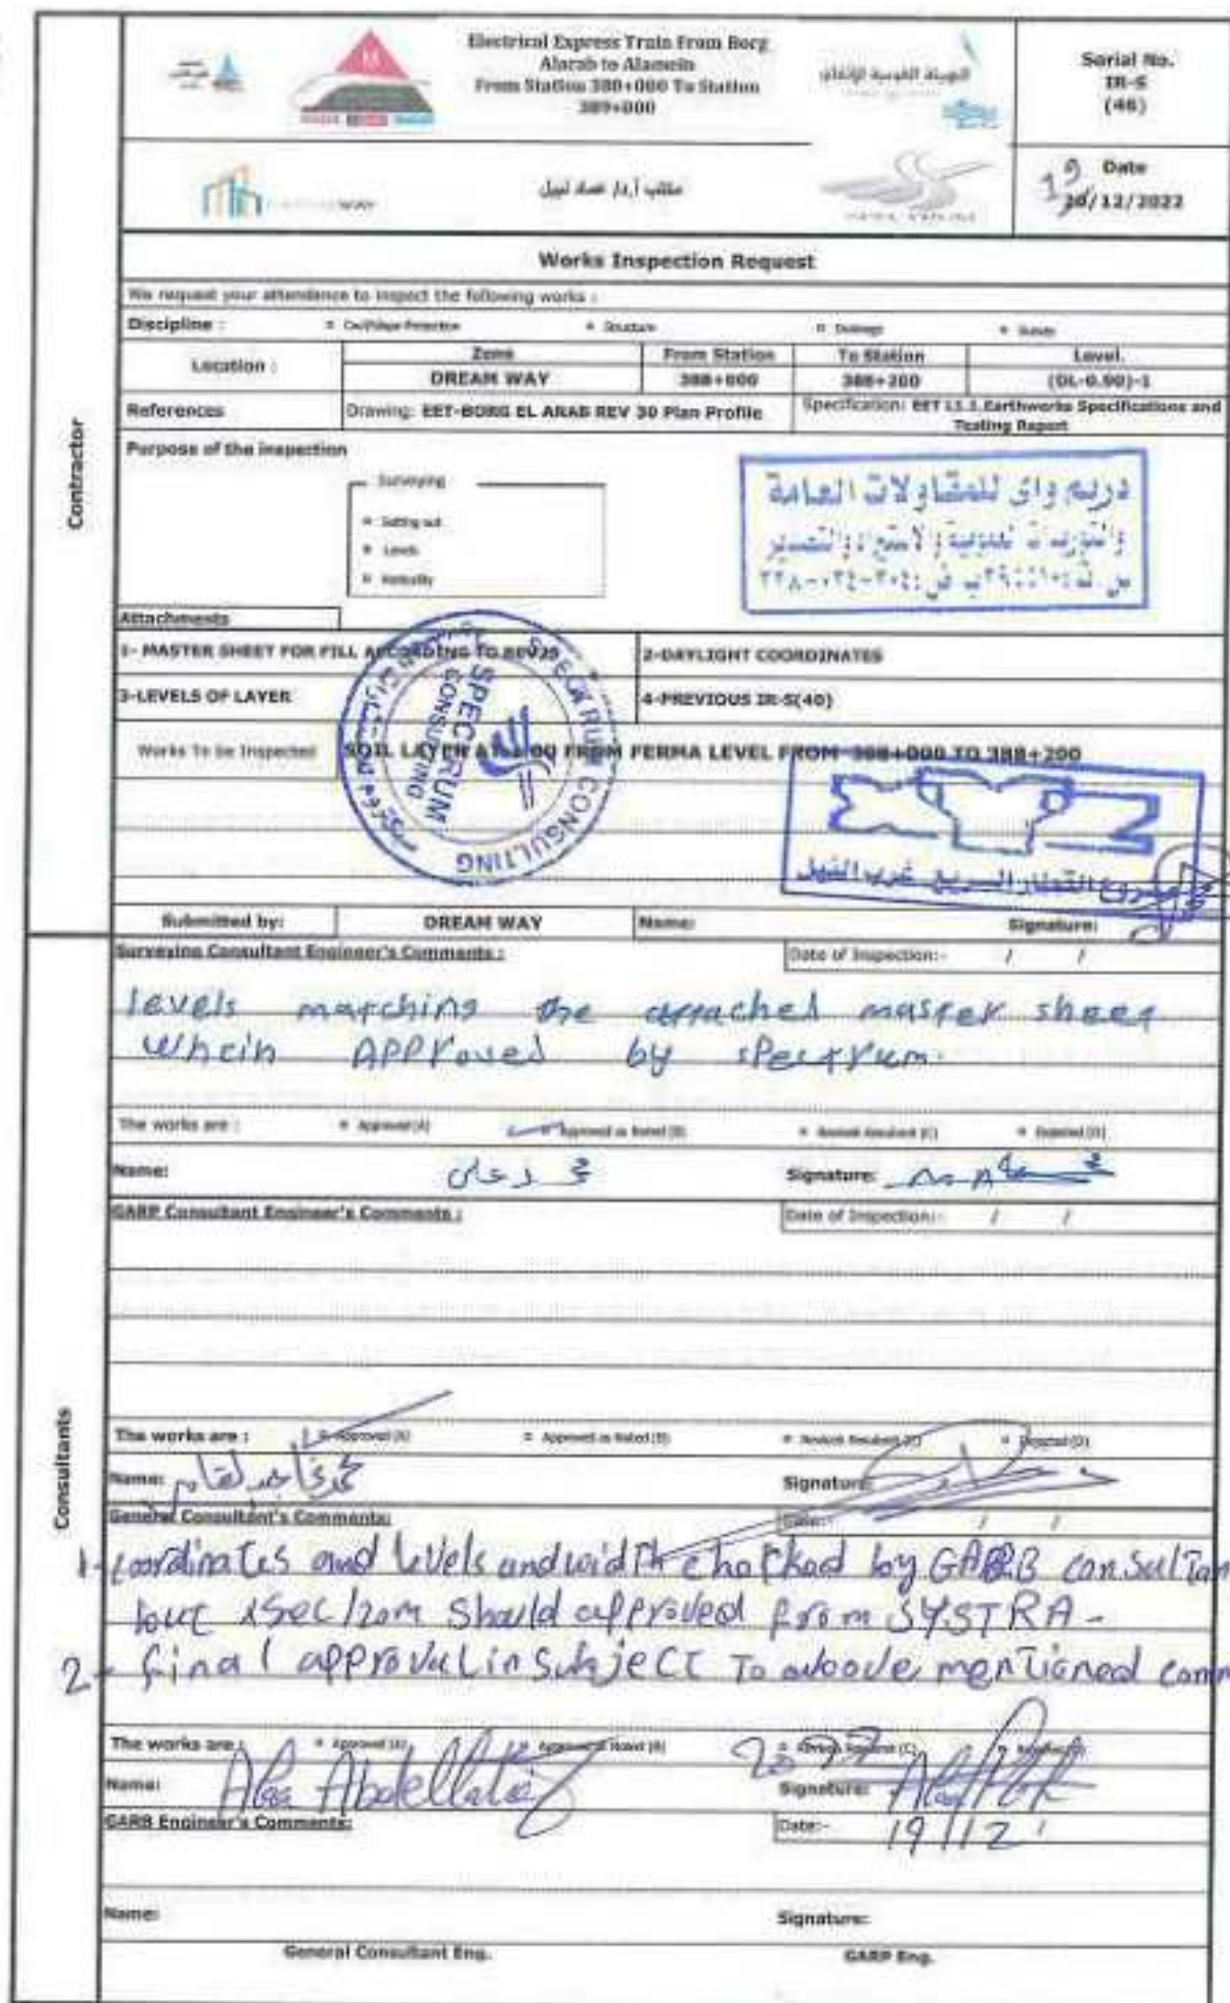 Electrical Express Train From Borg
Alarab to Alamein
From Station 380+000 To Station
389+000
الهيئة القومية للإنفاق
Serial No.
IR-S
(46)
مكتب أ.د/ عماد نبيل
WAY
Date
19/12/2022
Works Inspection Request
We request your attendance to inspect the following works :
Discipline :
Structure
Drainage
Survey
Location :
Zone
From Station
To Station
Level.
DREAM WAY
388+000
388+200
(DL-0.90)-1
References
Drawing: EET-BORG EL ARAB REV 30 Plan Profile
Specification: EET Earthworks Specifications and
Testing Report
Contractor
Purpose of the inspection
Surveying
Setting out
Levels
دريم واى للمقاولات العامة
Attachments
1- MASTER SHEET FOR FILL ACCORDING TO
2-DAYLIGHT COORDINATES
3-LEVELS OF LAYER
4-PREVIOUS IR-S(40)
SPECTRUM CONSULTING
SPECTRUM
CONSULTING
Works To be Inspected
SOIL LAYER FROM FERMA LEVEL FROM 388+000 TO 388+200
مشروع القطار السريع غرب النيل
Submitted by:
DREAM WAY
Name:
Signature:
Surveying Consultant Engineer's Comments :
Date of Inspection:- / /
levels matching the attached master sheet
Whcih APProved by sPectrum.
The works are :
Approved (A)
Approved as Noted (B)
Rejected (D)
Name:
Signature:
GARP Consultant Engineer's Comments :
Date of Inspection:- / /
Consultants
The works are :
Approved (A)
Approved as Noted (B)
Rejected (D)
Name:
Signature:
General Consultant's Comments:
Date:- / /
1- coordinates and levels and width checked by GARB consultan
but should approved from SYSTRA -
2- final approval in Subject To above mentioned comm
The works are :
Approved (A)
Name:
Alaa Abdellateif
Signature:
GARB Engineer's Comments:
Date:- 19/12
Name:
Signature:
General Consultant Eng.
GARP Eng.